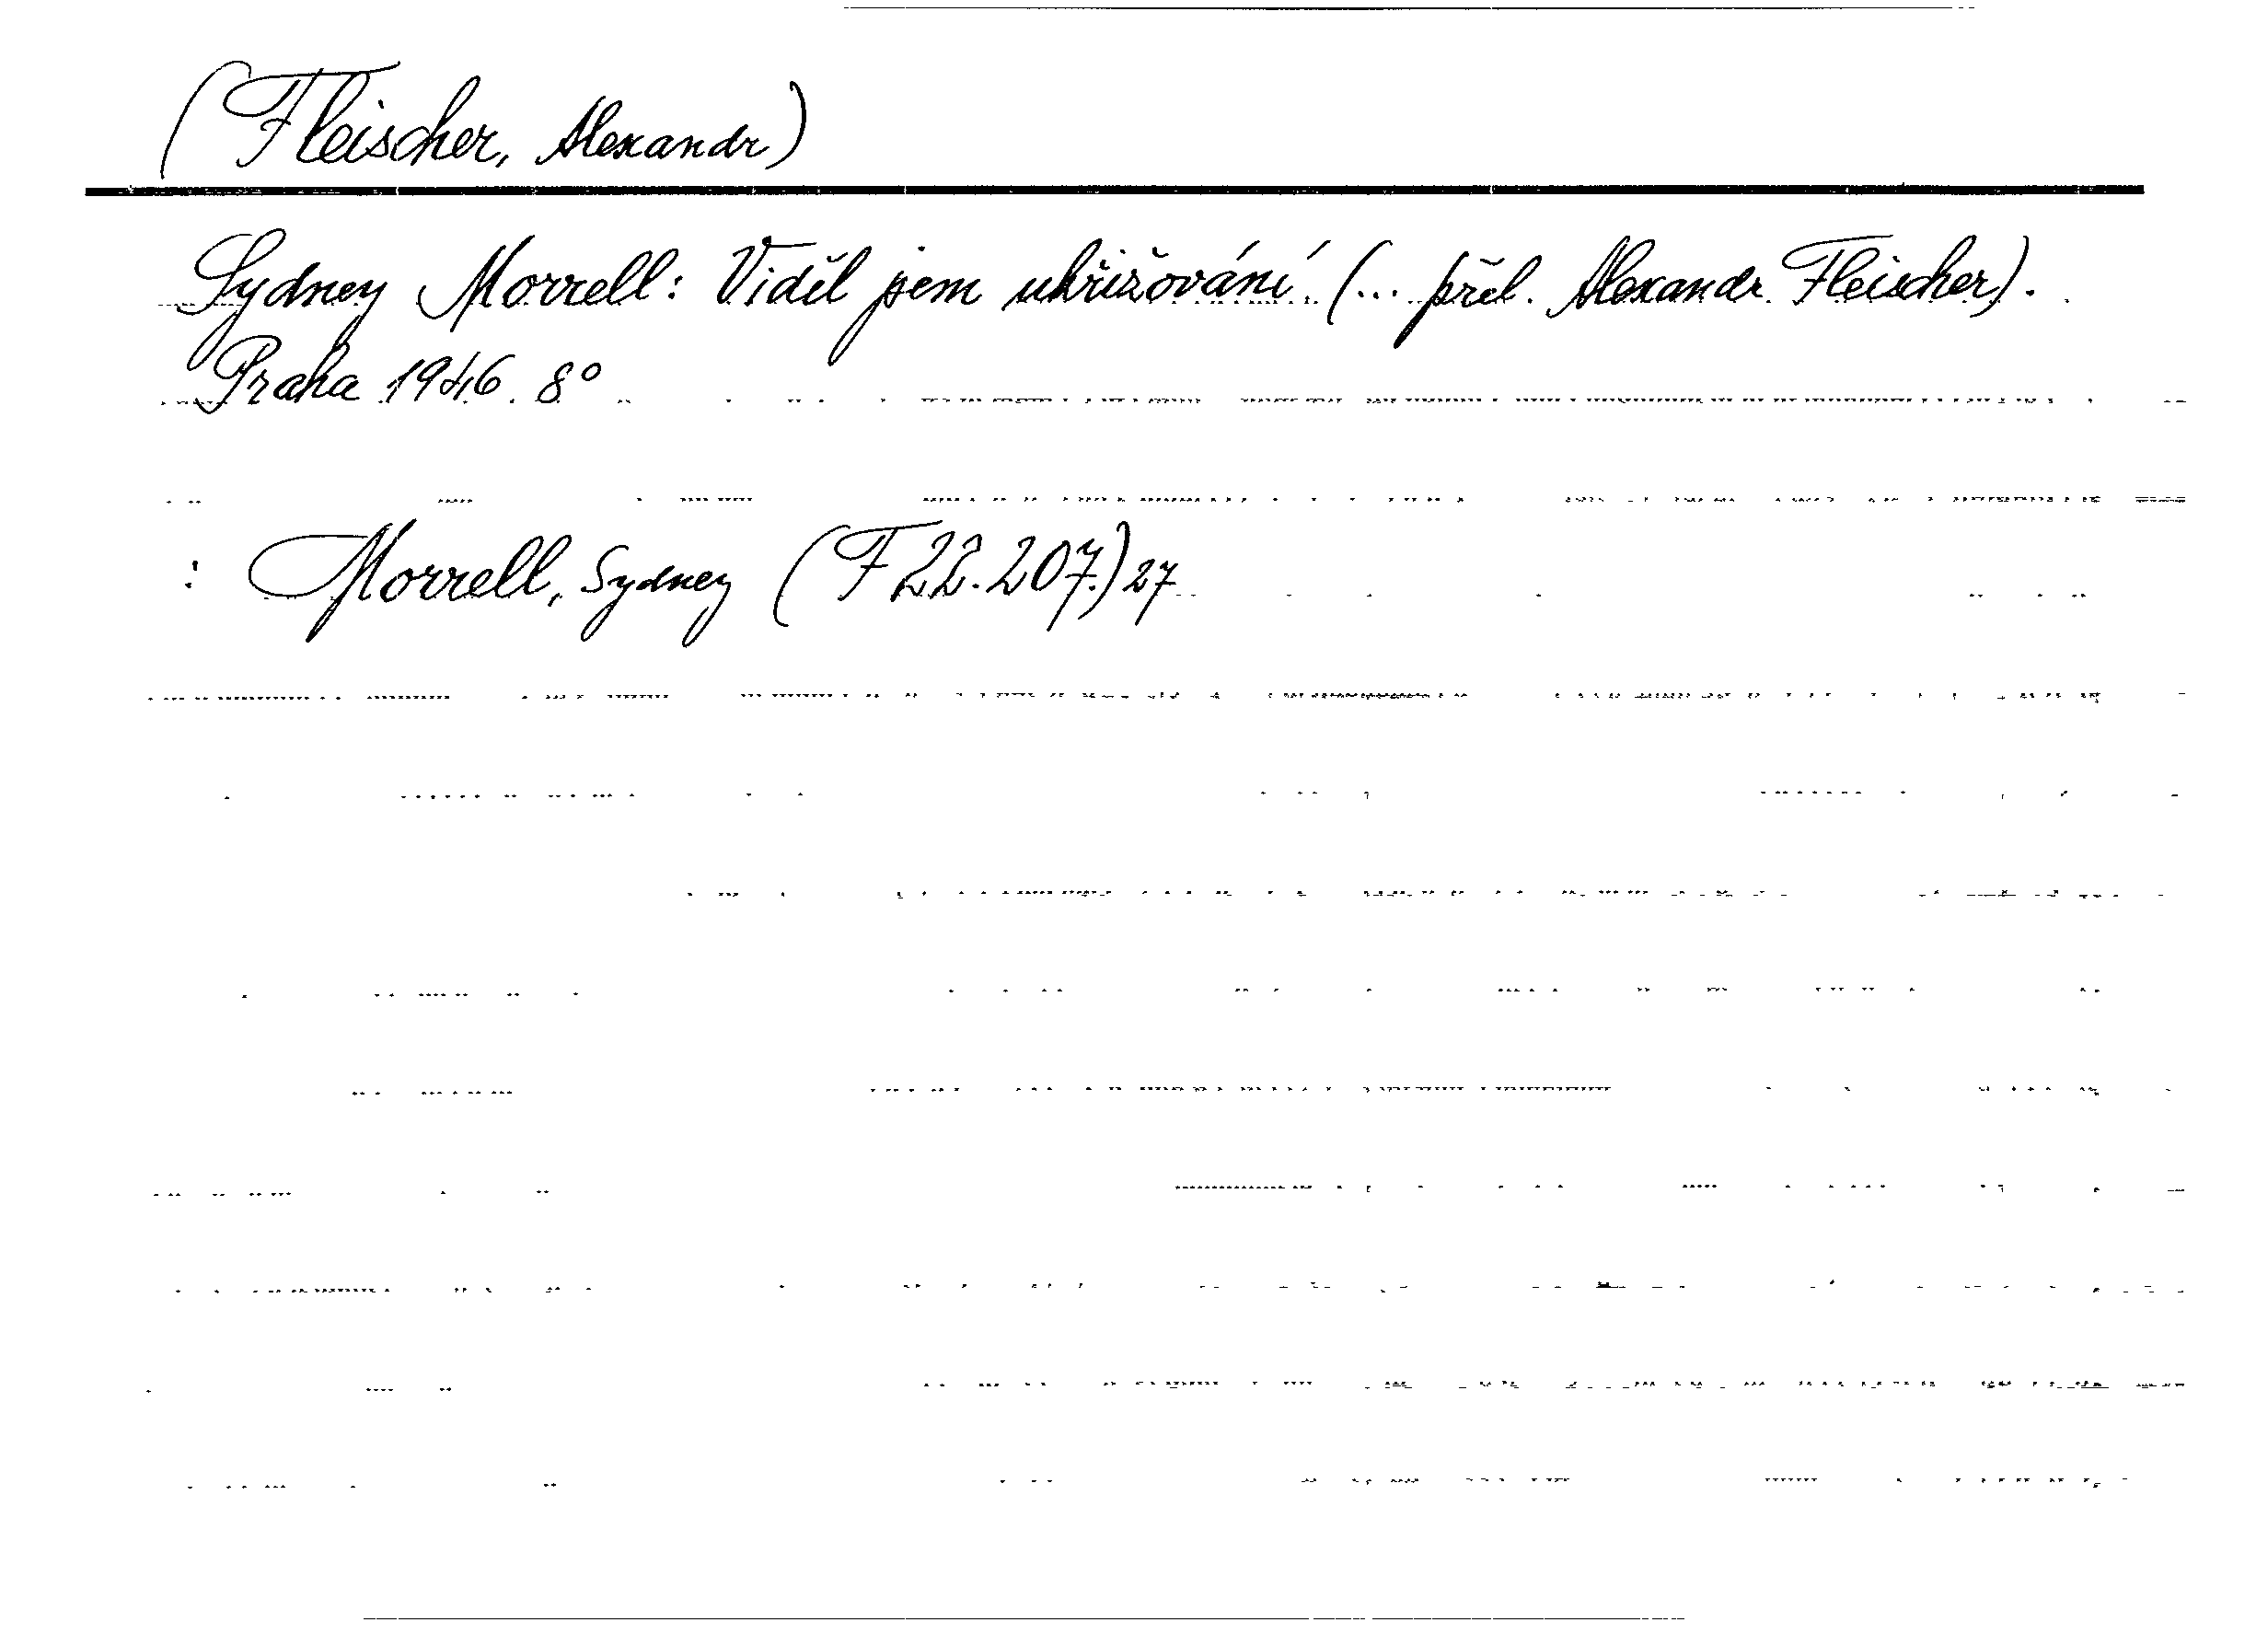 (Fleischer, Alexandr)
Sydney Morrell: Viděl jsem ukřižování. (... přel. Alexandr Fleischer).
Praha 1946. 8°
: Morrell, Sydney (F 22.207.) 27